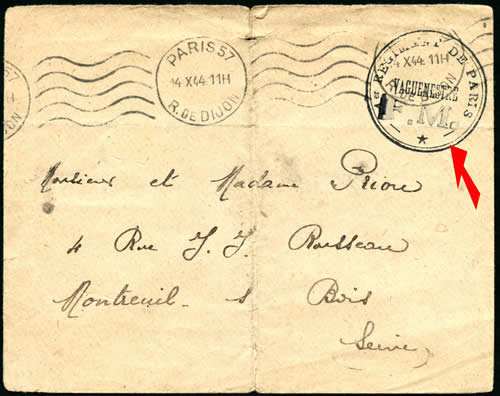 PARIS 57
14 X 44 11H
R. DE DIJON
57
ON
1er REGIMENT DE PARIS
VAGUEMESTRE
F.M.
4 X44. 11H
R. DE DIJON
Monsieur et Madame Priore
4 Rue J. J. Rousseau
Montreuil - s Bois
Seine